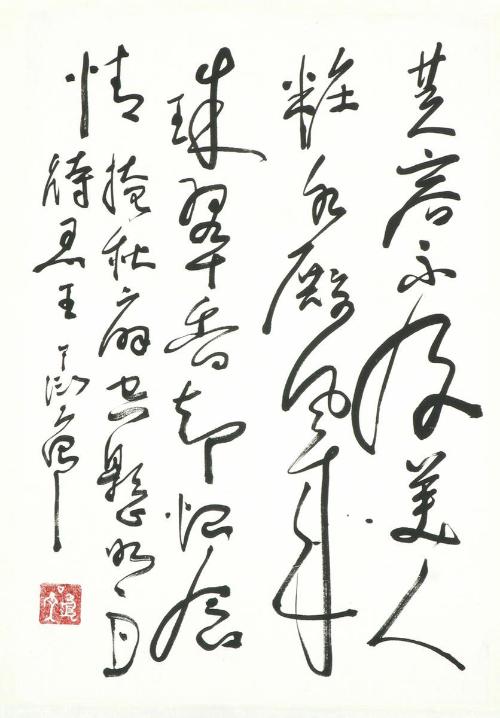 芙蓉不及美人
粧水殿風来
珠翠香却恨含
情掩秋扇空懸明月
待君王 丁衍庸